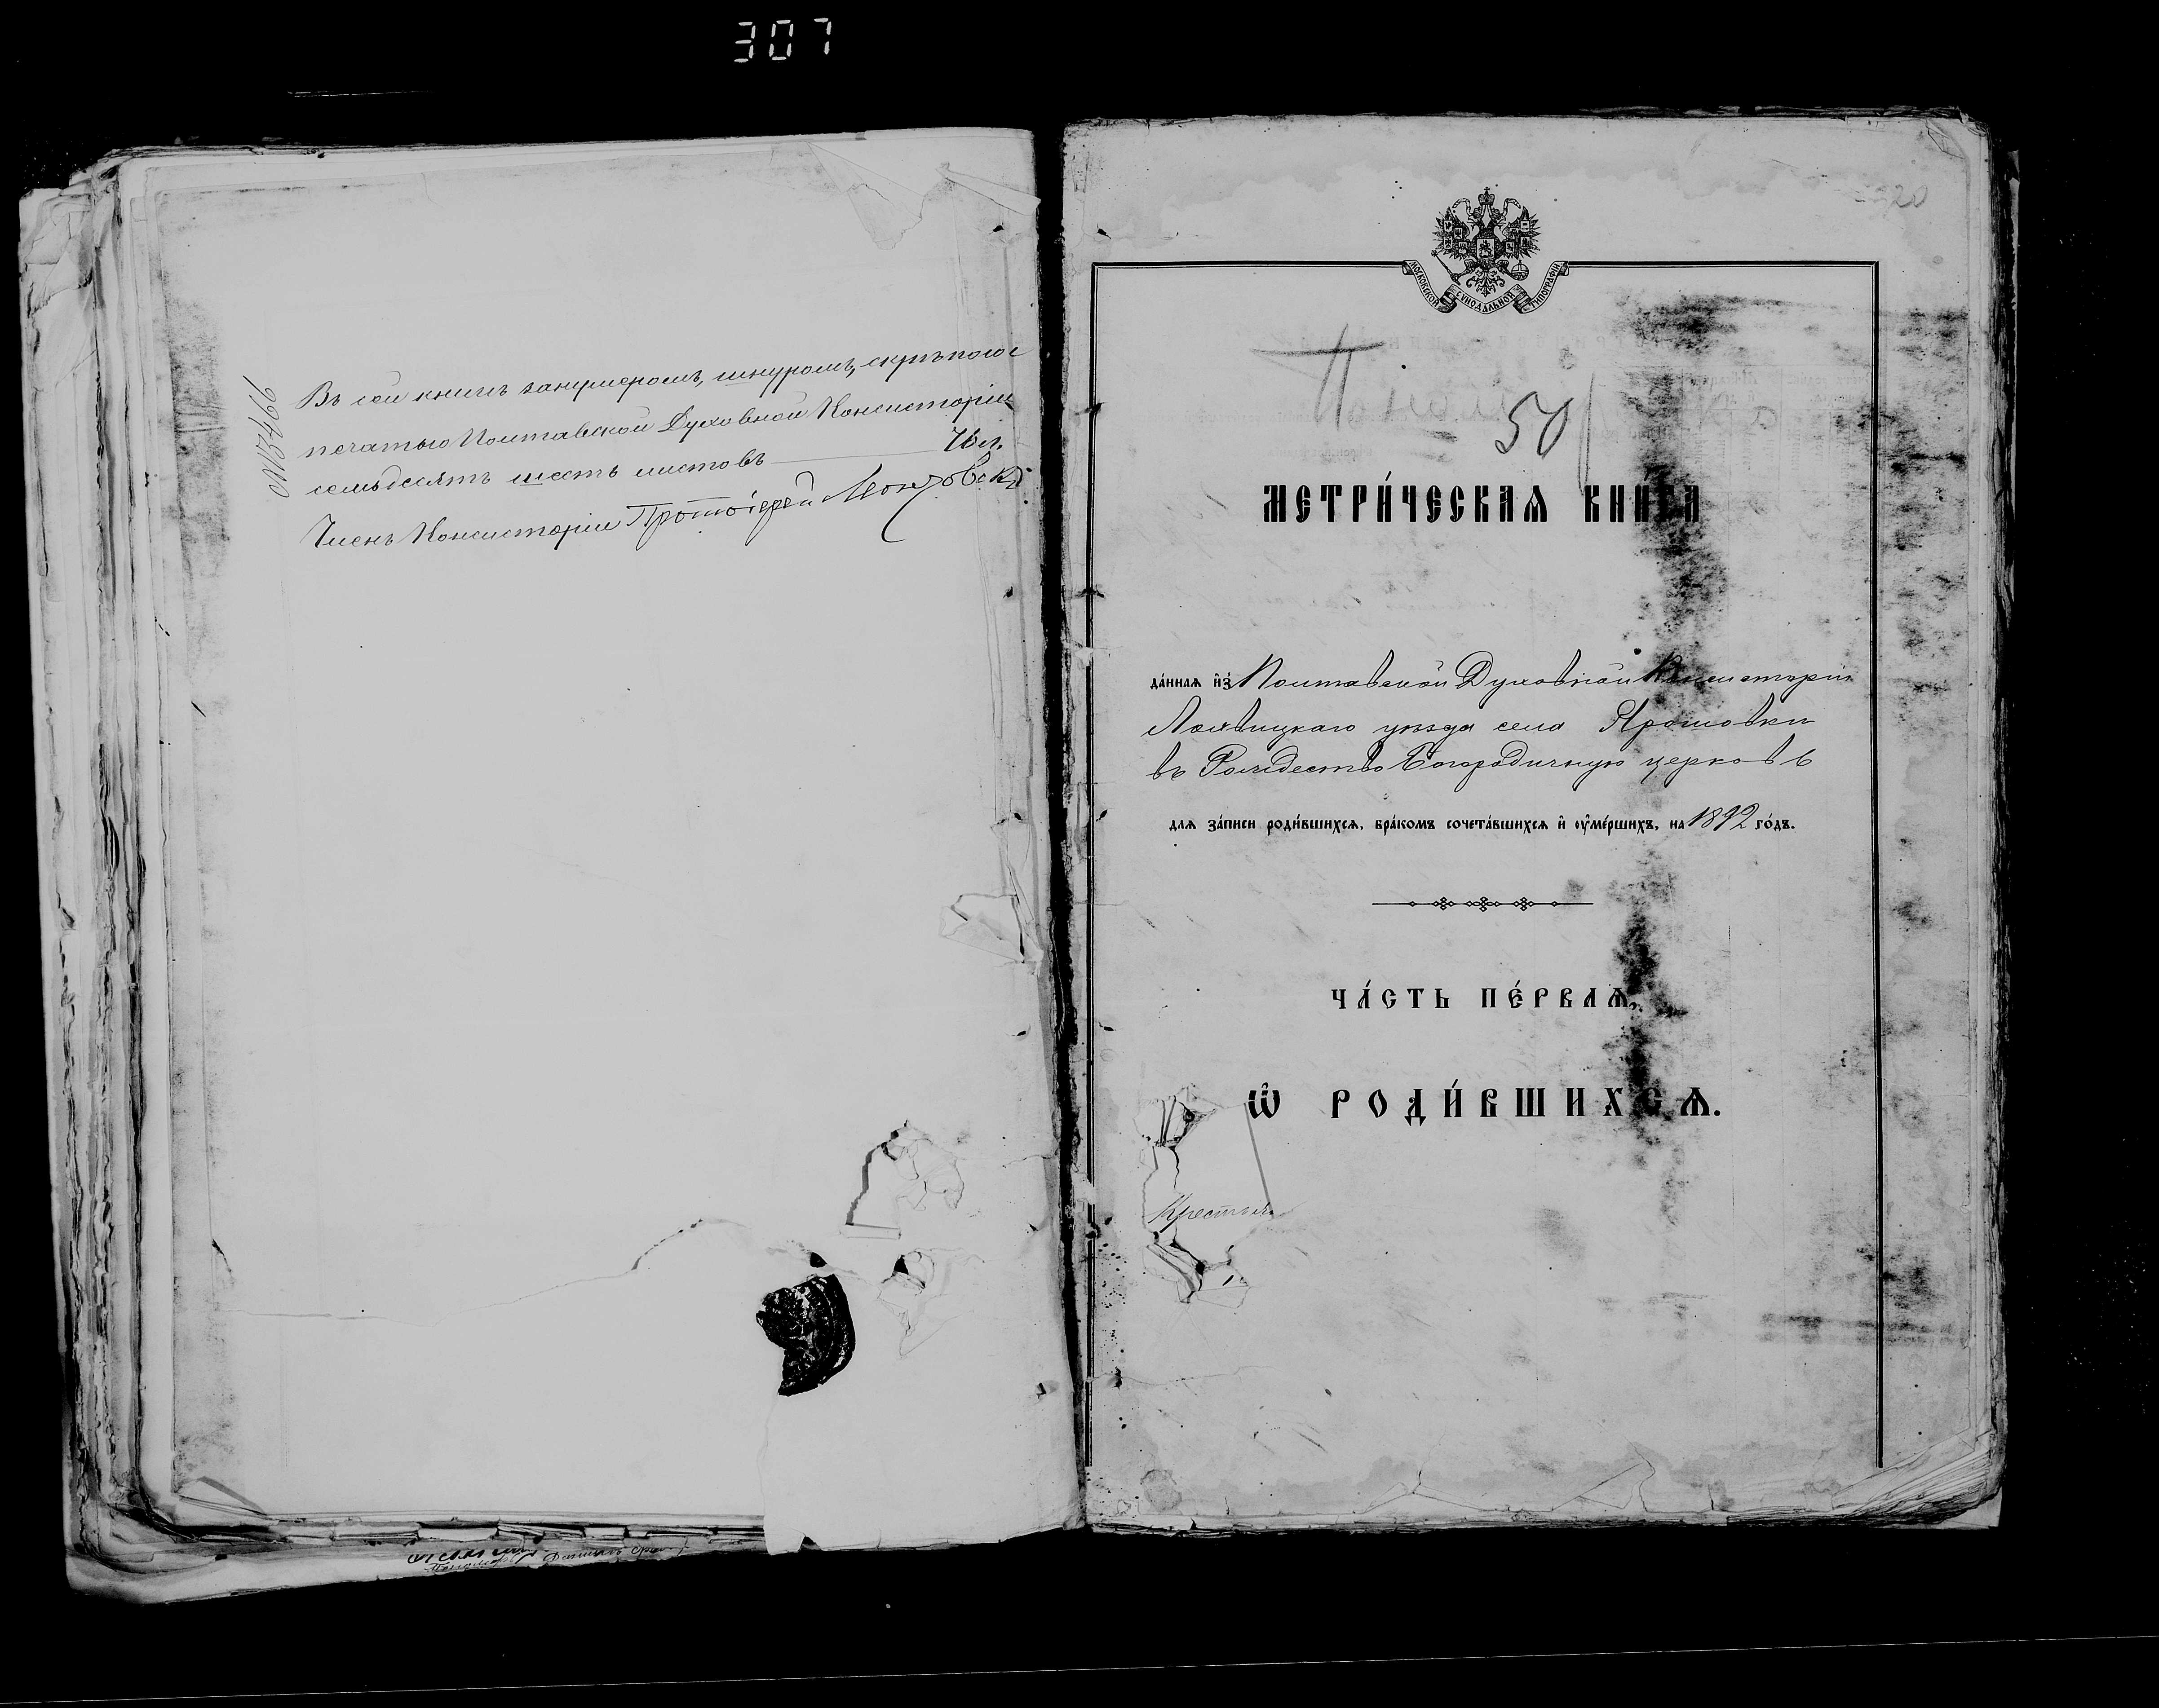 307
№ 13466
Въ сей книгѣ занумеромъ, шнуромъ, скрѣпою и
печатью Полтавской Духовной Консисторіи
семьдесять шесть листовъ 76 л.
Членъ Консисторіи Протоіерей
320
МОСКОВСКОЙ СѴНОДАЛЬНОЙ ТИПОГРАФІИ
П.
50
МЕТРИ́ЧЕСКАѦ КНИ́ГА
да́ннаѧ и҆з̾ Полтавской Духовной Консисторіи
Лохвицкаго уѣзда села Ярошовки
въ Рождество Богородичную церковь
длѧ за́писи роди́вшихсѧ, бра́комъ сочета́вшихсѧ и҆ ᲂу҆ме́ршихъ, на 1892 го́дъ.
ЧА́СТЬ ПЕ́РВАѦ,
Ѽ РОДИ́ВШИХСѦ.